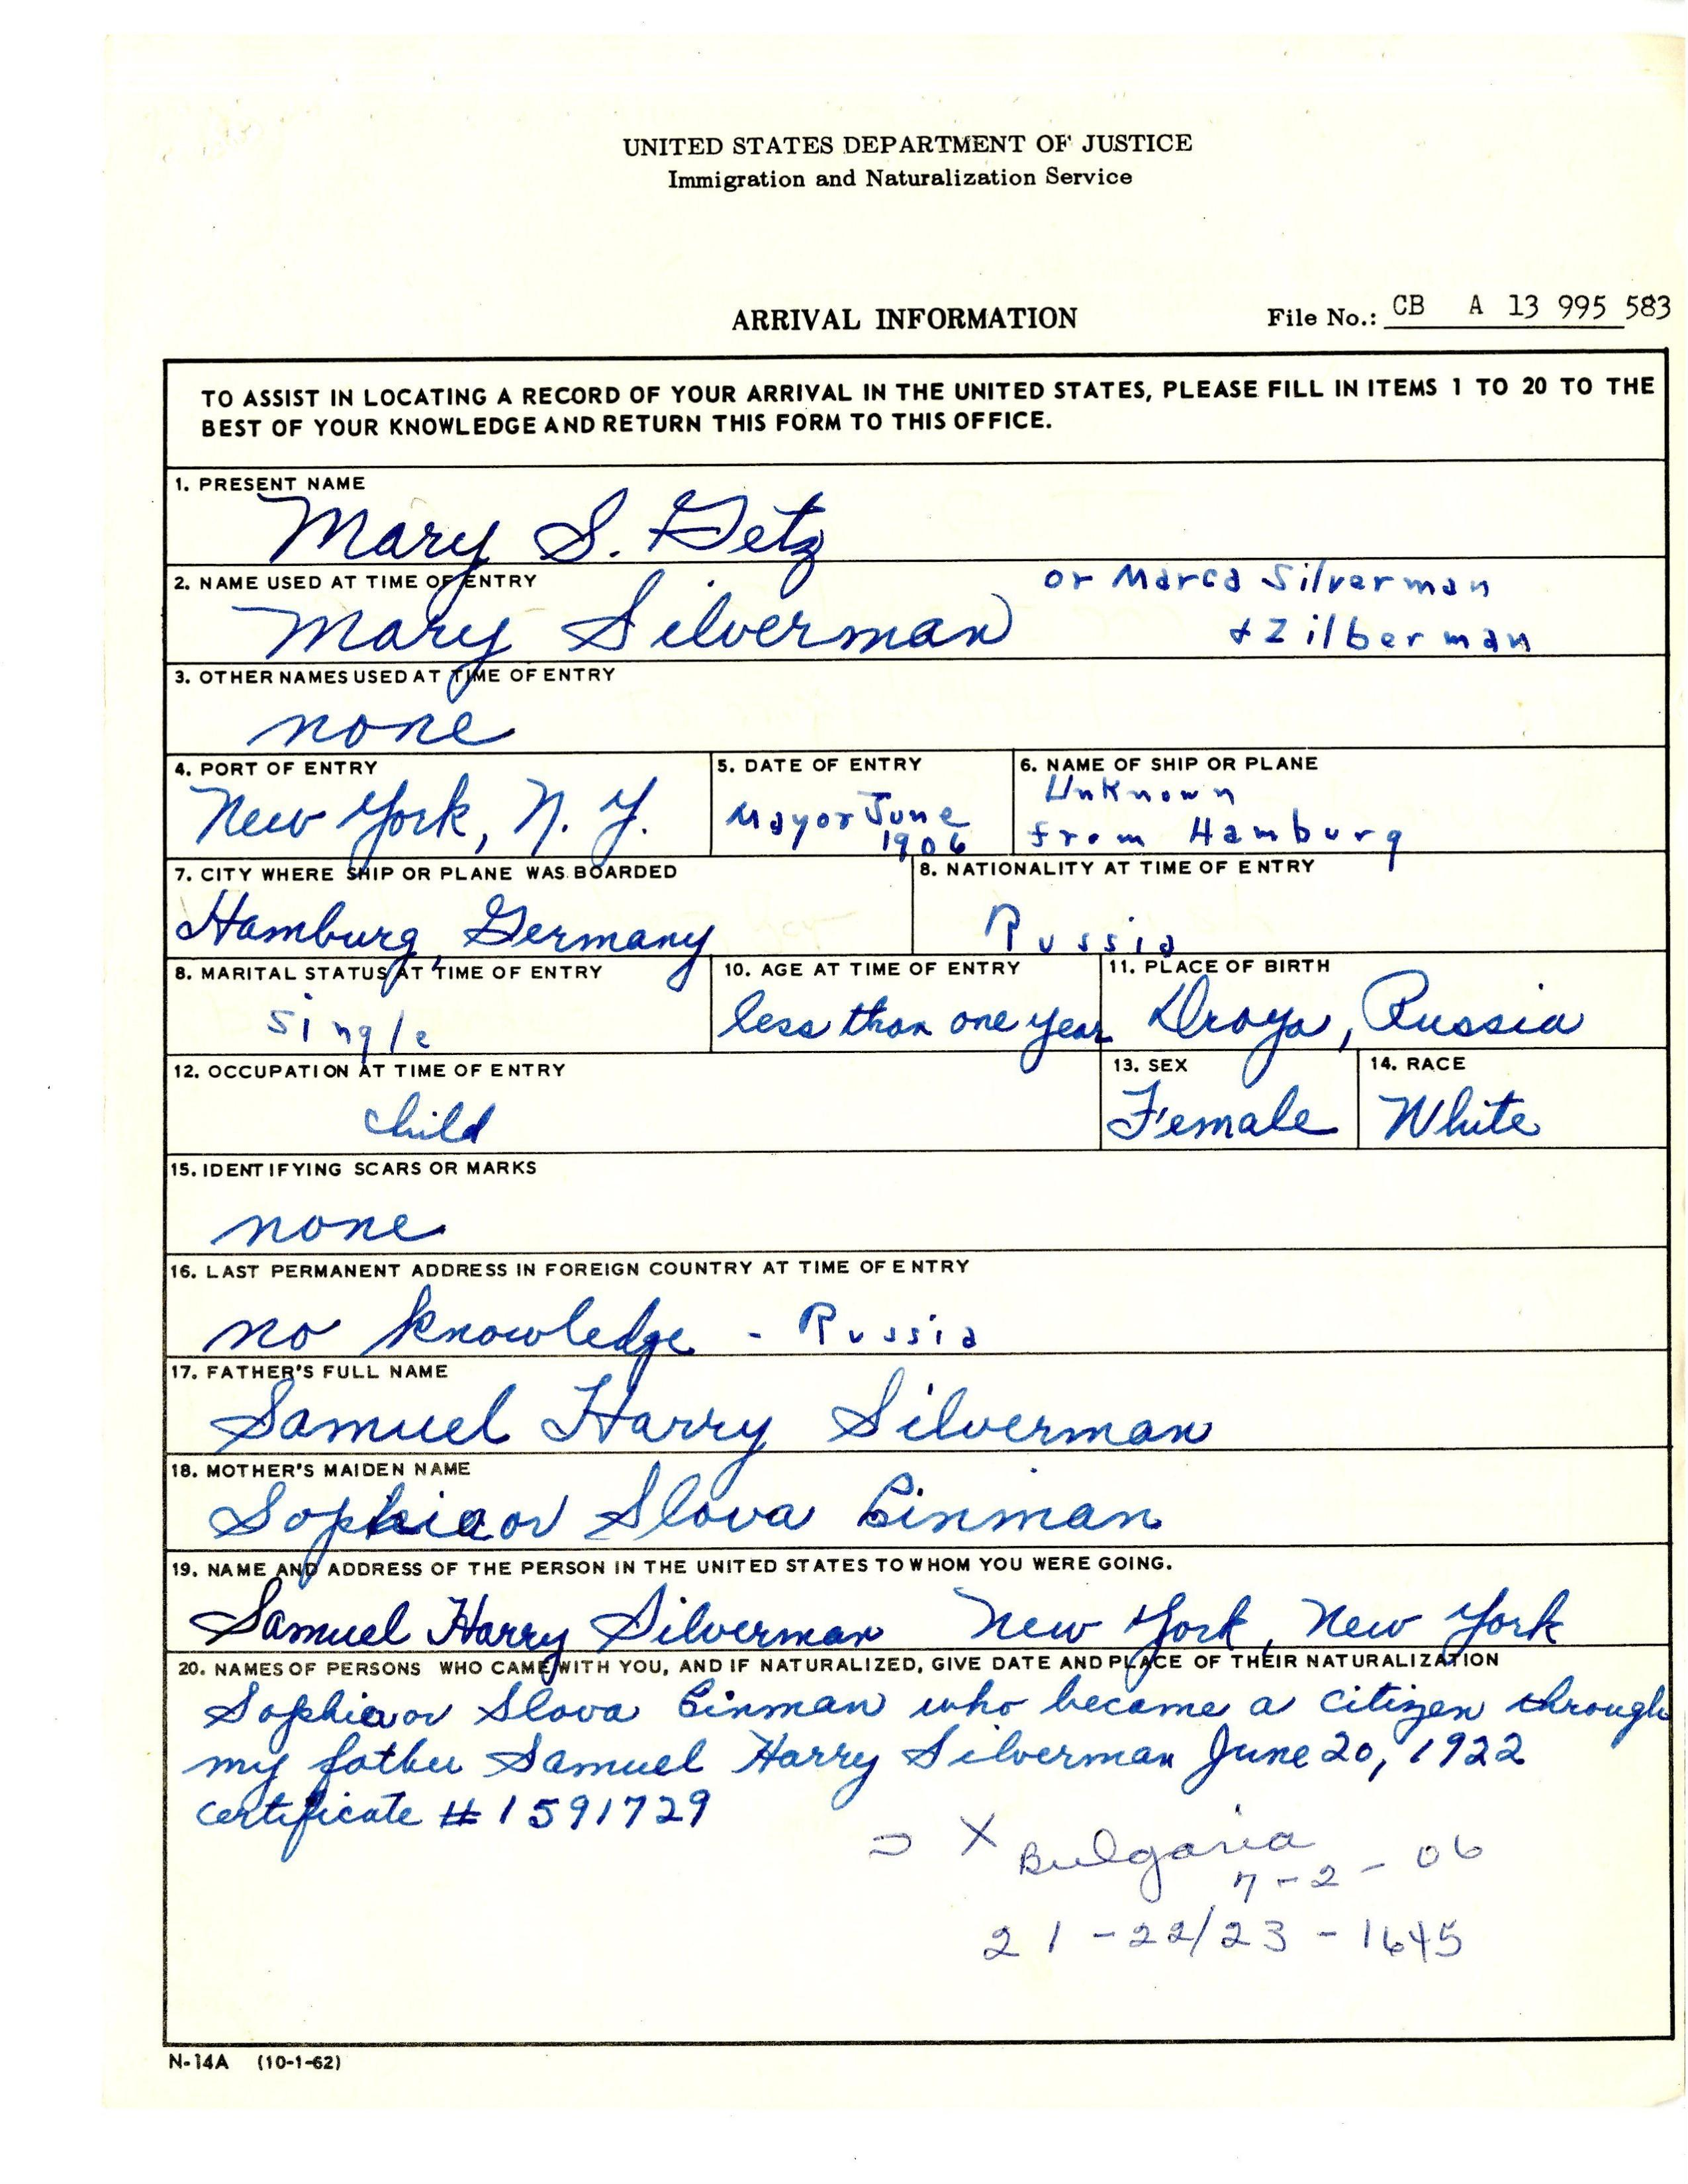 UNITED STATES DEPARTMENT OF JUSTICE
Immigration and Naturalization Service
ARRIVAL INFORMATION
File No.: CB A 13 995 583
TO ASSIST IN LOCATING A RECORD OF YOUR ARRIVAL IN THE UNITED STATES, PLEASE FILL IN ITEMS 1 TO 20 TO THE
BEST OF YOUR KNOWLEDGE AND RETURN THIS FORM TO THIS OFFICE.
1. PRESENT NAME
Mary S. Getz
2. NAME USED AT TIME OF ENTRY
Mary Silverman
or Marca Silverman
+ Zilberman
3. OTHER NAMES USED AT TIME OF ENTRY
none
4. PORT OF ENTRY
New York, N. Y.
5. DATE OF ENTRY
May or June
1906
6. NAME OF SHIP OR PLANE
Unknown
from Hamburg
7. CITY WHERE SHIP OR PLANE WAS BOARDED
Hamburg, Germany
8. NATIONALITY AT TIME OF ENTRY
Russia
8. MARITAL STATUS AT TIME OF ENTRY
single
10. AGE AT TIME OF ENTRY
less than one year
11. PLACE OF BIRTH
Droya, Russia
12. OCCUPATION AT TIME OF ENTRY
child
13. SEX
Female
14. RACE
White
15. IDENTIFYING SCARS OR MARKS
none
16. LAST PERMANENT ADDRESS IN FOREIGN COUNTRY AT TIME OF ENTRY
no knowledge - Russia
17. FATHER'S FULL NAME
Samuel Harry Silverman
18. MOTHER'S MAIDEN NAME
Sophia or Slova Binman
19. NAME AND ADDRESS OF THE PERSON IN THE UNITED STATES TO WHOM YOU WERE GOING.
Samuel Harry Silverman New York, New York
20. NAMES OF PERSONS WHO CAME WITH YOU, AND IF NATURALIZED, GIVE DATE AND PLACE OF THEIR NATURALIZATION
Sophia or Slova Binman who became a citizen through
my father Samuel Harry Silverman June 20, 1922
certificate # 1591729
X Bulgaria
7-2-06
21-22/23-1645
N-14A (10-1-62)